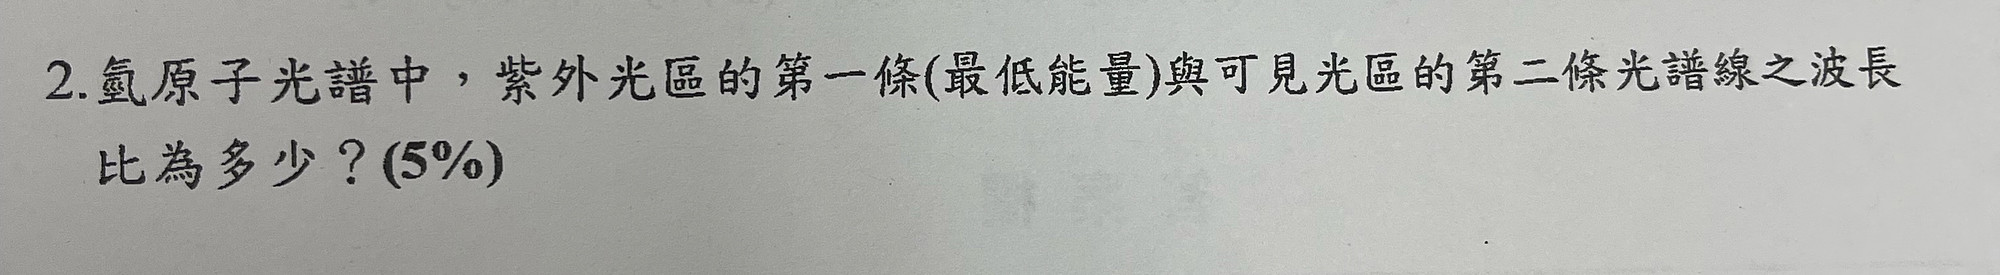 2.氫原子光譜中，紫外光區的第一條(最低能量)與可見光區的第二條光譜線之波長
比為多少？(5%)